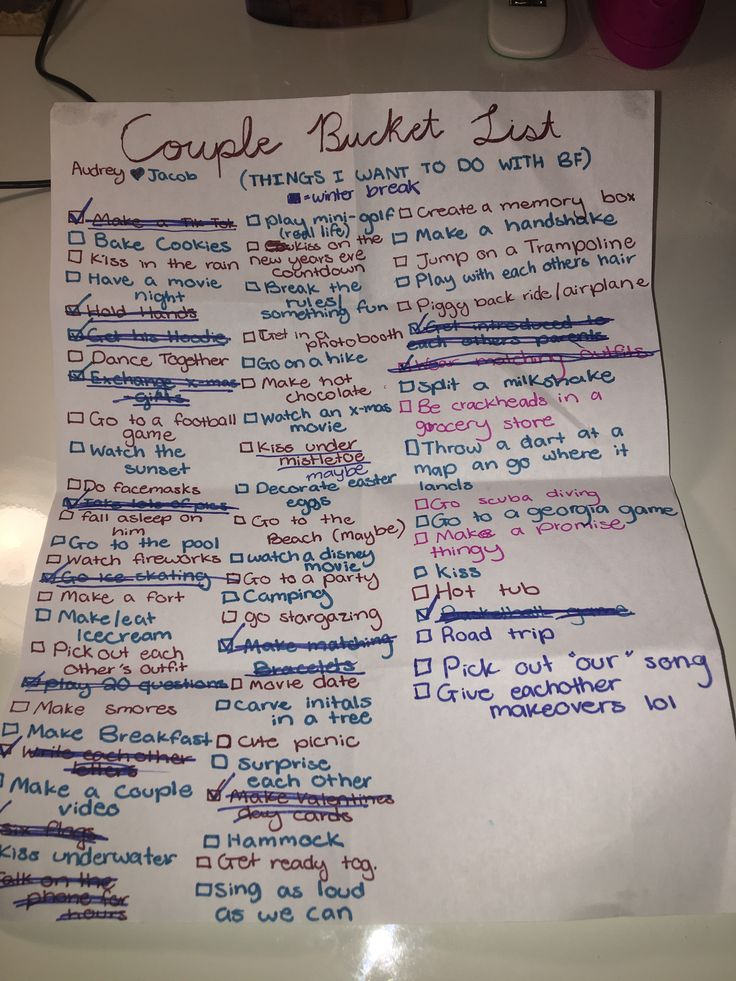 Couple Bucket List
Audrey ♥ Jacob
(THINGS I WANT TO DO WITH BF)
■=winter break
Make a Tik Tok
Bake Cookies
Kiss in the rain
Have a movie
night
Hold Hands
Get his Hoodie
Dance Together
Exchange x-mas
gifts
Go to a football
game
Watch the
sunset
Do facemasks
Take lots of pics
fall asleep on
him
Go to the pool
Watch fireworks
Go ice skating
Make a fort
Make/eat
Icecream
Pick out each
other's outfit
Play 20 questions
Make smores
Make Breakfast
Write each other
letters
Make a couple
video
Six flags
Kiss underwater
Talk on the
phone for
hours
play mini-golf
(real life)
Kiss on the
new years eve
countdown
Break the
rules/
something fun
Get in a
photobooth
Go on a hike
Make hot
chocolate
Watch an x-mas
movie
Kiss under
mistletoe
maybe
Decorate easter
eggs
Go to the
Beach (maybe)
watch a disney
movie
Go to a party
Camping
go stargazing
Make matching
Bracelets
Movie date
Carve initals
in a tree
Cute picnic
Surprise
each other
Make Valentines
day cards
Hammock
Get ready tog.
Sing as loud
as we can
Create a memory box
Make a handshake
Jump on a Trampoline
Play with each others hair
Piggy back ride/airplane
Get introduced to
each others parents
Wear matching outfits
Split a milkshake
Be crackheads in a
grocery store
Throw a dart at a
map an go where it
lands
Go scuba diving
Go to a georgia game
Make a promise
thingy
Kiss
Hot tub
Basketball game
Road trip
Pick out "our" song
Give eachother
makeovers lol